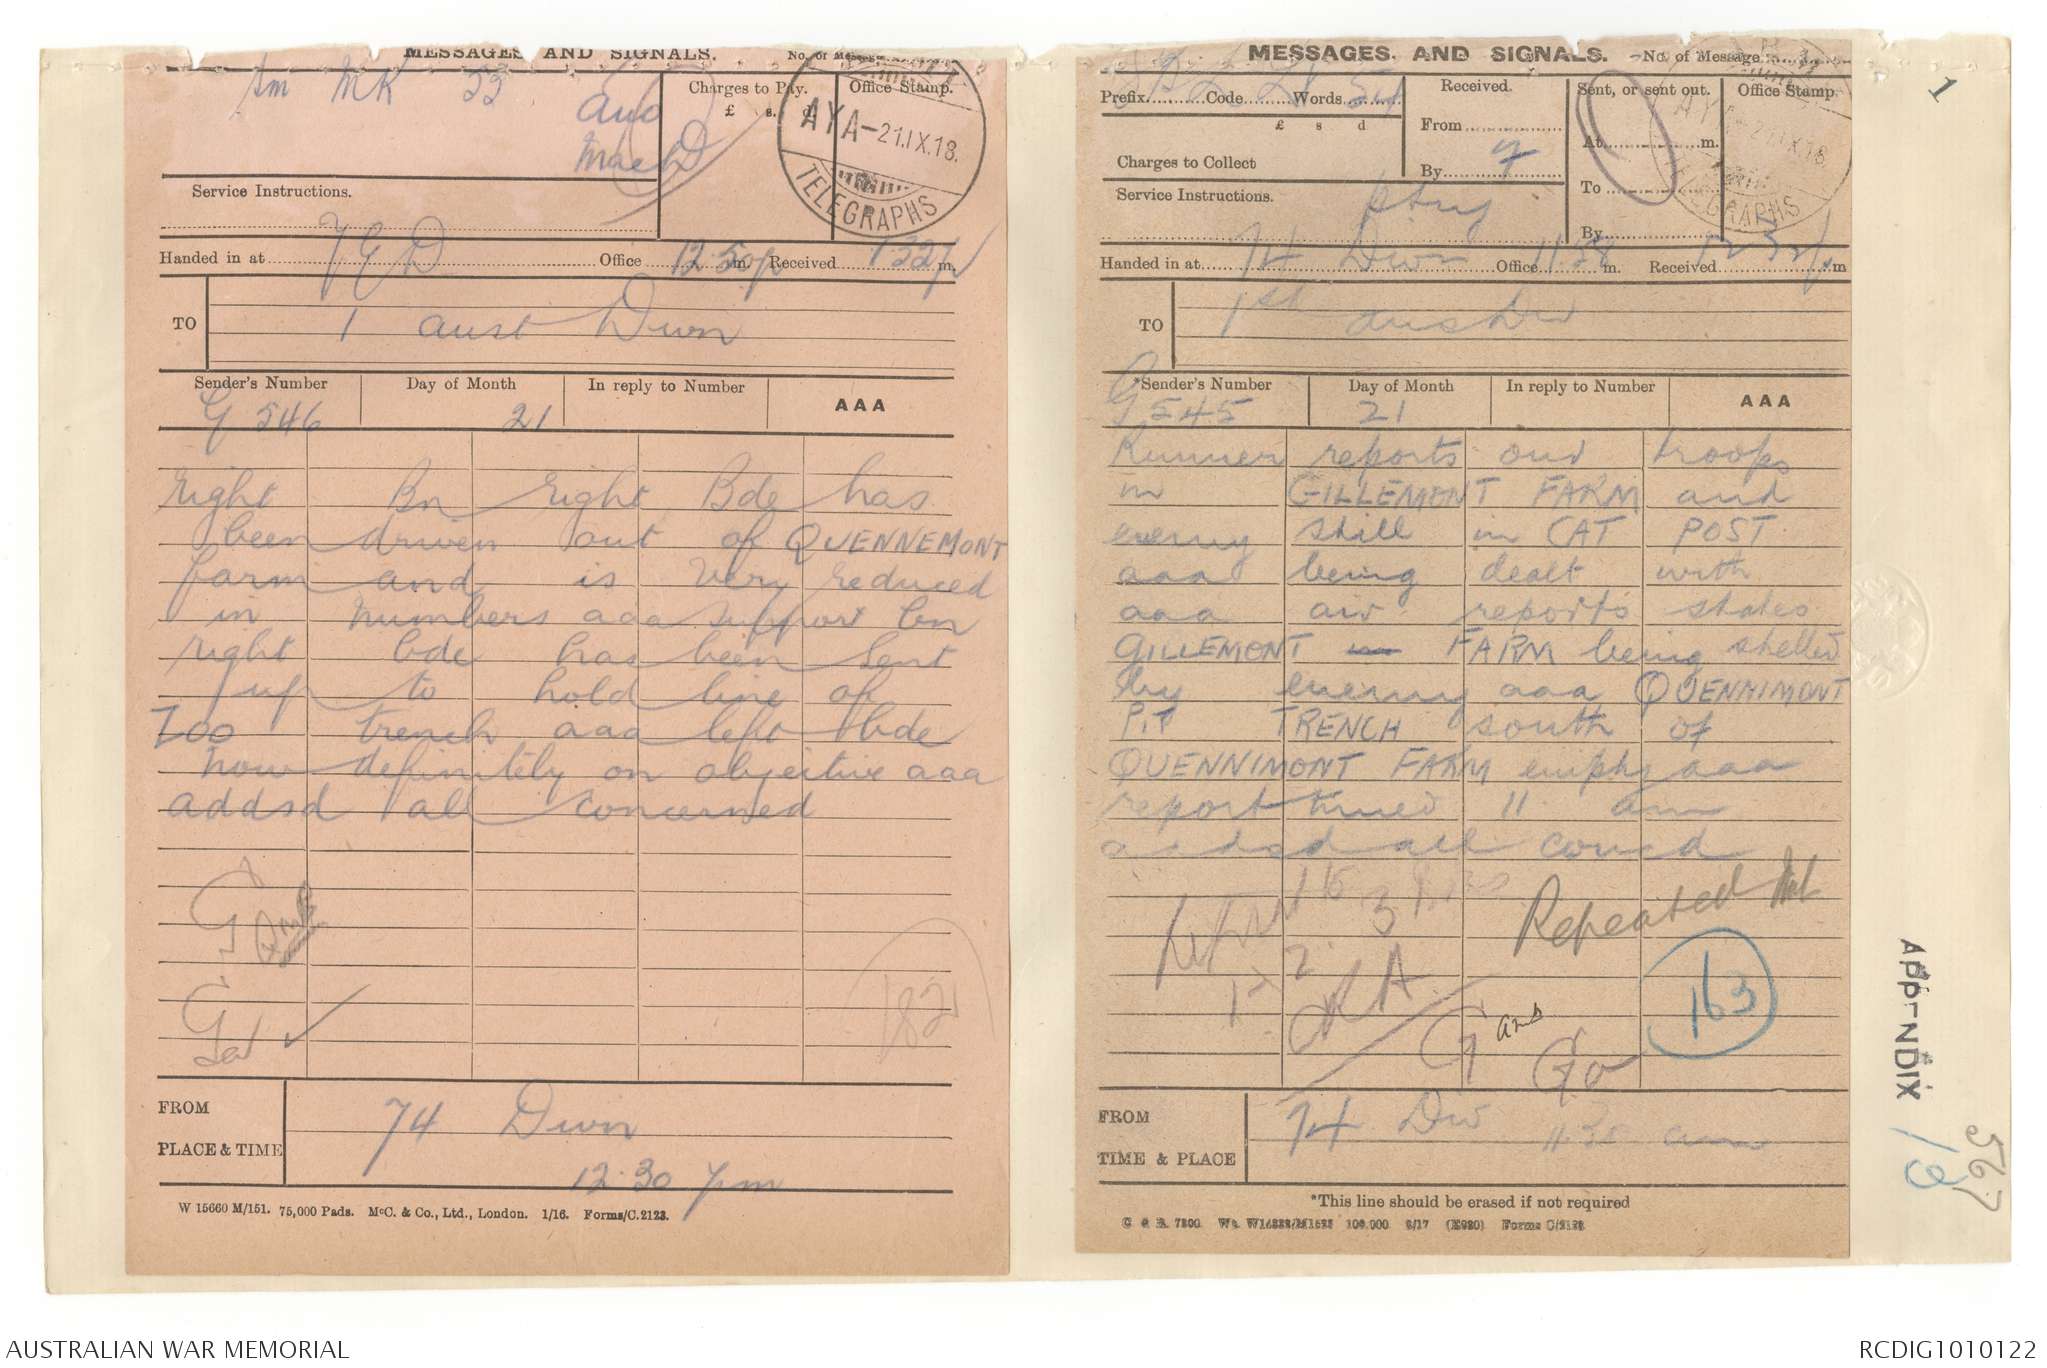 MESSAGES AND SIGNALS.
No. of Message
Sm MK 53
Aus
Charges to Pay.
£ s. d.
Office Stamp.
AYA-21.IX.18.
TELEGRAPHS
Service Instructions.
Handed in at YED Office 12.50p m. Received 1 32p m.
TO 1 Aust Divn
Sender's Number
Day of Month
In reply to Number
AAA
G 546
21
right Bn right Bde has
been driven out of QUENNEMONT
farm and is very reduced
in numbers aaa support bn
right bde has been sent
up to hold line of
Zoo trench aaa left bde
now definitely on objective aaa
addsd all concerned
G
G
182
FROM 74 Divn
PLACE & TIME
12.30 pm
W 15660 M/151. 75,000 Pads. McC. & Co., Ltd., London. 1/16. Forms/C.2123.
MESSAGES AND SIGNALS.
No. of Message
Prefix Code Words 54
£ s d
Charges to Collect
Service Instructions.
Received.
From
By
Sent, or sent out.
At m.
To
By
Office Stamp.
AYA-21.IX.18.
TELEGRAPHS
Handed in at 74 Divn Office 11.58 m. Received 12 32p m
TO 1st Aus Div
*Sender's Number
Day of Month
In reply to Number
AAA
G 545
21
Runner reports our troops
in GILLEMONT FARM and
enemy still in CAT POST
aaa being dealt with
aaa air reports states
GILLEMONT FARM being shelled
by enemy aaa QUENNIMONT
PIT TRENCH south of
QUENNIMONT FARM empty aaa
report timed 11 am
addsd all concd
Repeated
RA
163
G and Ga
FROM 74 Div 11.30 am
TIME & PLACE
*This line should be erased if not required
Forms C/2123
1
APPENDIX 13
567
AUSTRALIAN WAR MEMORIAL
RCDIG1010122